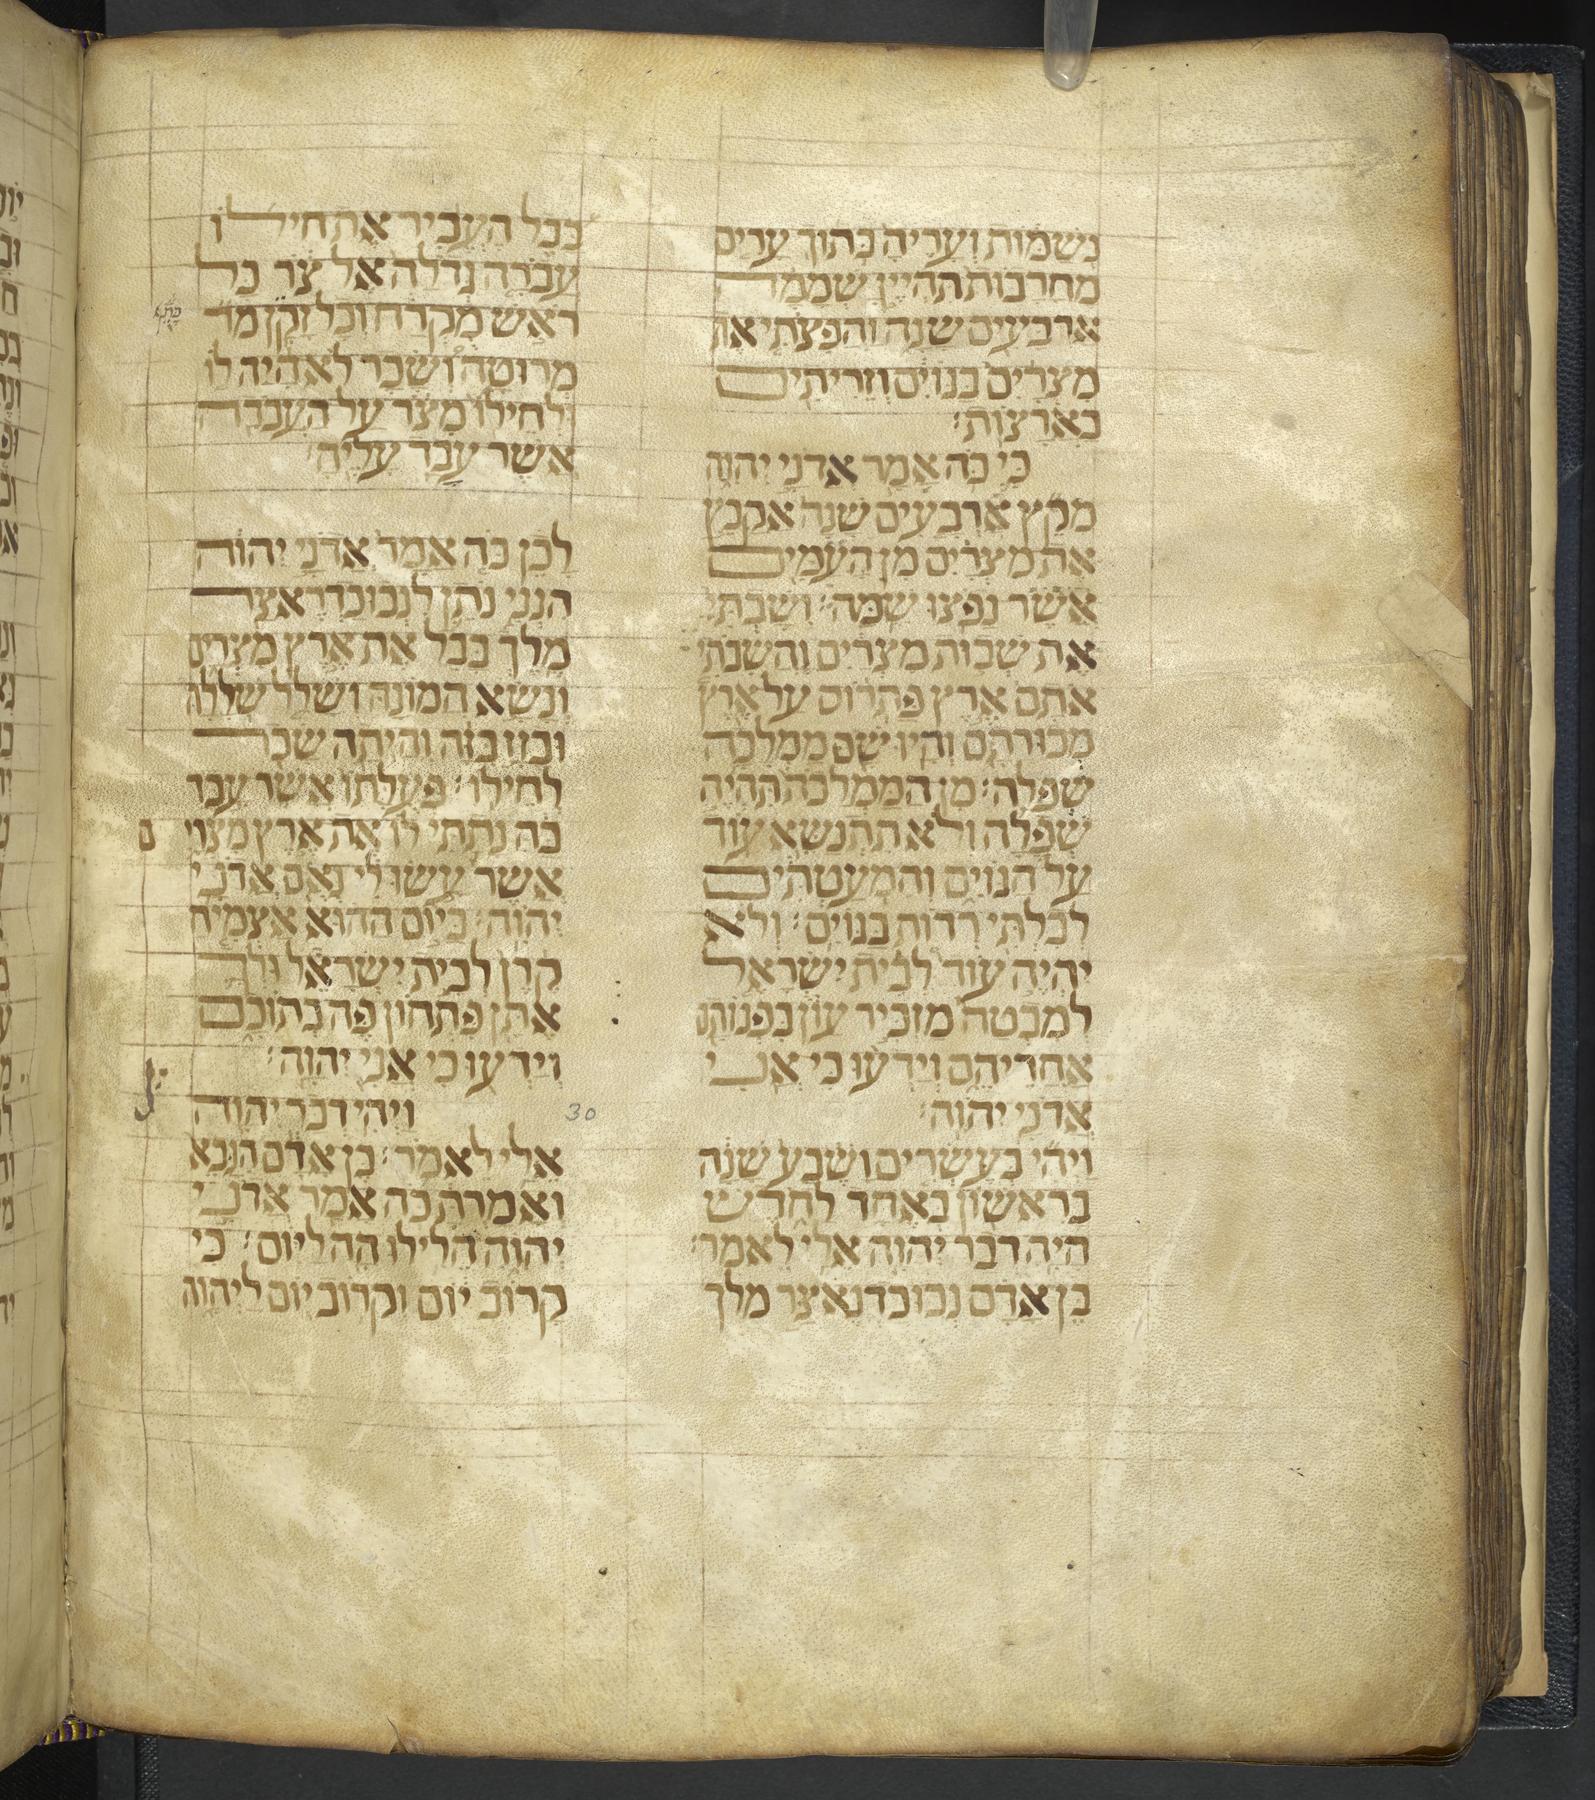 נשמות ועריה בתוך ערים
מחרבות תהיין שממה
ארבעים שנה והפצתי את
מצרים בגוים וזריתים
בארצות׃
כי כה אמר אדני יהוה
מקץ ארבעים שנה אקבץ
את מצרים מן העמים
אשר נפצו שמה׃ ושבתי
את שבות מצרים והשבתי
אתם ארץ פתרוס על ארץ
מכורתם והיו שם ממלכה
שפלה׃ מן הממלכה תהיה
שפלה ולא תתנשא עוד
על הגוים והמעטתים
לבלתי רדות בגוים׃ ולא
יהיה עוד לבית ישראל
למבטח מזכיר עון בפנותם
אחריהם וידעו כי אני
אדני יהוה׃
ויהי בעשרים ושבע שנה
בראשון באחד לחדש
היה דבר יהוה אלי לאמר׃
בן אדם נבוכדנאצר מלך
בבל העביר את חילו
עברה גדלה אל צר כל
ראש מקרח וכל זקן מר
מרוטה ושכר לא היה לו
ולחילו מצר על העברה
אשר עבר עליה׃
לכן כה אמר אדני יהוה
הנני נתן לנבוכדראצר
מלך בבל את ארץ מצרים
ונשא המונה ושלל שללה
ובזז בזה והיתה שכר
לחילו׃ פעלתו אשר עבר
בה נתתי לו את ארץ מצרי
ם
אשר עשו לי נאם אדני
יהוה׃ ביום ההוא אצמיח
קרן לבית ישראל ולך
אתן פתחון פה בתוכם
וידעו כי אני יהוה׃
30 ויהי דבר יהוה
אלי לאמר׃ בן אדם הנבא
ואמרת כה אמר אדני
יהוה הלילו הה ליום׃ כי
קרוב יום וקרוב יום ליהוה